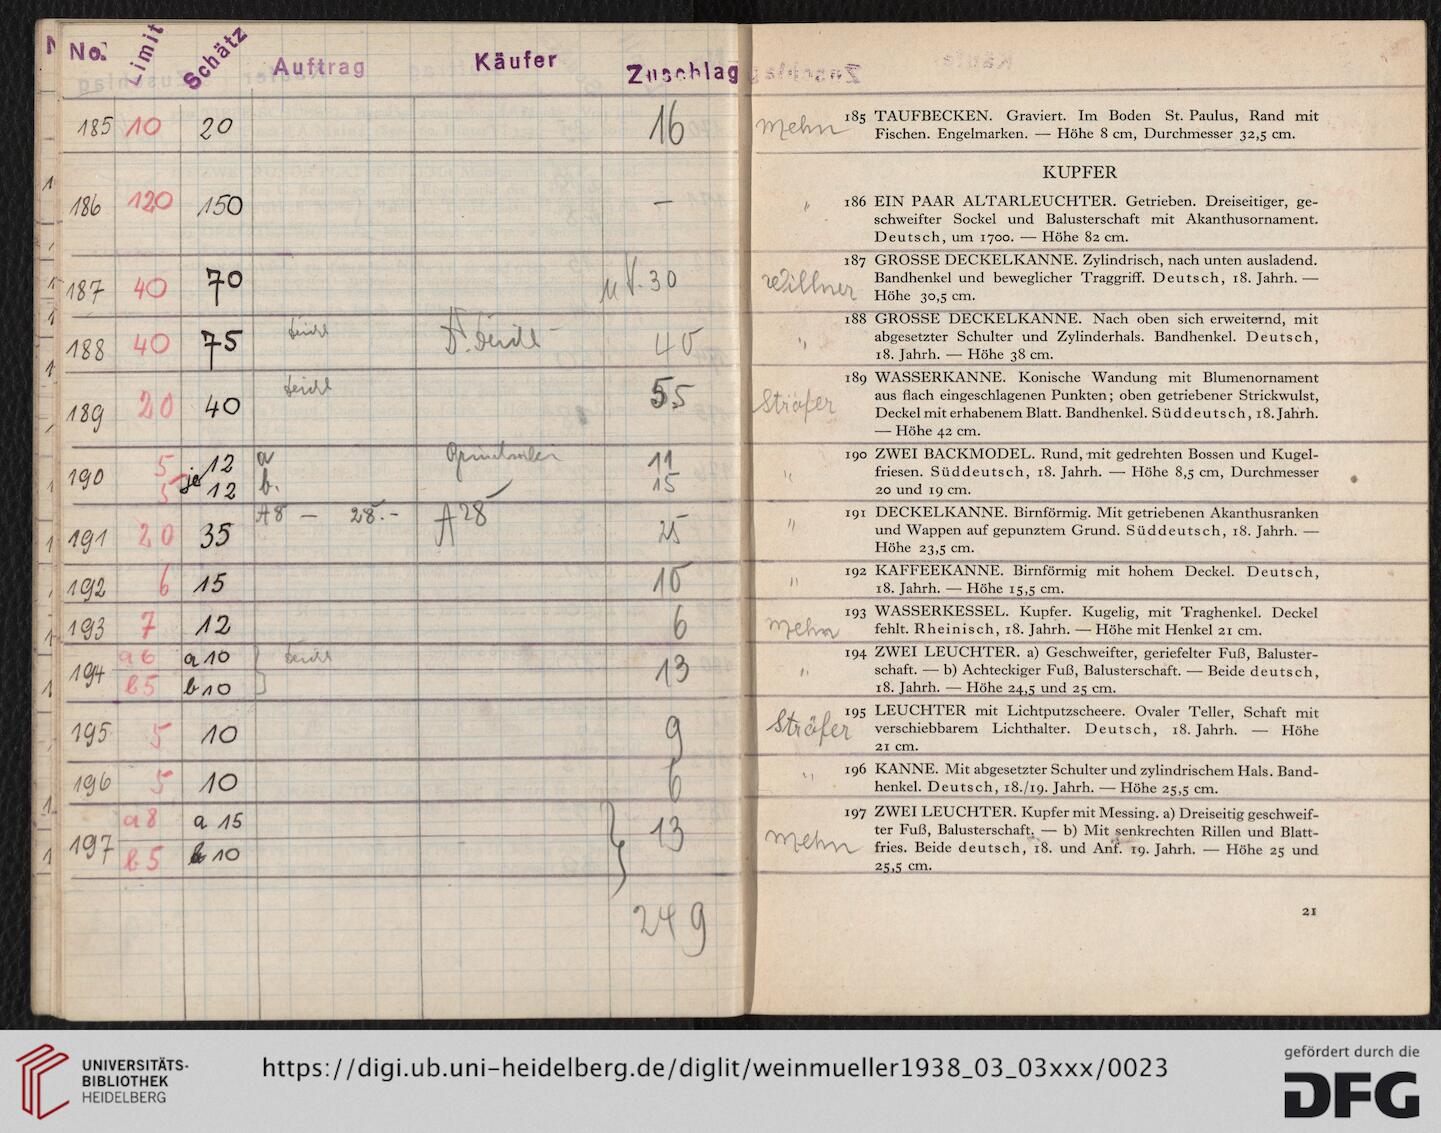 No. Limit Schätz Auftrag Käufer Zuschlag
185 10 20 16
186 120 150 —
187 40 70 30
188 40 75 40
189 20 40 55
190 5 je 12 a 11
5 12 b. 15
191 20 35 A8 — 28.- A 28 25
192 6 15 10
193 7 12 6
194 a 6 a 10 13
b 5 b 10
195 5 10 9
196 5 10 6
197 a 8 a 15 13
b 5 b 10
249
Mehn 185 TAUFBECKEN. Graviert. Im Boden St. Paulus, Rand mit
Fischen. Engelmarken. — Höhe 8 cm, Durchmesser 32,5 cm.
KUPFER
" 186 EIN PAAR ALTARLEUCHTER. Getrieben. Dreiseitiger, ge-
schweifter Sockel und Balusterschaft mit Akanthusornament.
Deutsch, um 1700. — Höhe 82 cm.
Willner 187 GROSSE DECKELKANNE. Zylindrisch, nach unten ausladend.
Bandhenkel und beweglicher Traggriff. Deutsch, 18. Jahrh. —
Höhe 30,5 cm.
" 188 GROSSE DECKELKANNE. Nach oben sich erweiternd, mit
abgesetzter Schulter und Zylinderhals. Bandhenkel. Deutsch,
18. Jahrh. — Höhe 38 cm.
Sträfer 189 WASSERKANNE. Konische Wandung mit Blumenornament
aus flach eingeschlagenen Punkten; oben getriebener Strickwulst,
Deckel mit erhabenem Blatt. Bandhenkel. Süddeutsch, 18. Jahrh.
— Höhe 42 cm.
" 190 ZWEI BACKMODEL. Rund, mit gedrehten Bossen und Kugel-
friesen. Süddeutsch, 18. Jahrh. — Höhe 8,5 cm, Durchmesser
20 und 19 cm.
" 191 DECKELKANNE. Birnförmig. Mit getriebenen Akanthusranken
und Wappen auf gepunztem Grund. Süddeutsch, 18. Jahrh. —
Höhe 23,5 cm.
" 192 KAFFEEKANNE. Birnförmig mit hohem Deckel. Deutsch,
18. Jahrh. — Höhe 15,5 cm.
Mehn 193 WASSERKESSEL. Kupfer. Kugelig, mit Traghenkel. Deckel
fehlt. Rheinisch, 18. Jahrh. — Höhe mit Henkel 21 cm.
" 194 ZWEI LEUCHTER. a) Geschweifter, geriefelter Fuß, Baluster-
schaft. — b) Achteckiger Fuß, Balusterschaft. — Beide deutsch,
18. Jahrh. — Höhe 24,5 und 25 cm.
Sträfer 195 LEUCHTER mit Lichtputzscheere. Ovaler Teller, Schaft mit
verschiebbarem Lichthalter. Deutsch, 18. Jahrh. — Höhe
21 cm.
" 196 KANNE. Mit abgesetzter Schulter und zylindrischem Hals. Band-
henkel. Deutsch, 18./19. Jahrh. — Höhe 25,5 cm.
Mehn 197 ZWEI LEUCHTER. Kupfer mit Messing. a) Dreiseitig geschweif-
ter Fuß, Balusterschaft. — b) Mit senkrechten Rillen und Blatt-
fries. Beide deutsch, 18. und Anf. 19. Jahrh. — Höhe 25 und
25,5 cm.
21
UNIVERSITÄTS-
BIBLIOTHEK
HEIDELBERG
https://digi.ub.uni-heidelberg.de/diglit/weinmueller1938_03_03xxx/0023
gefördert durch die
DFG